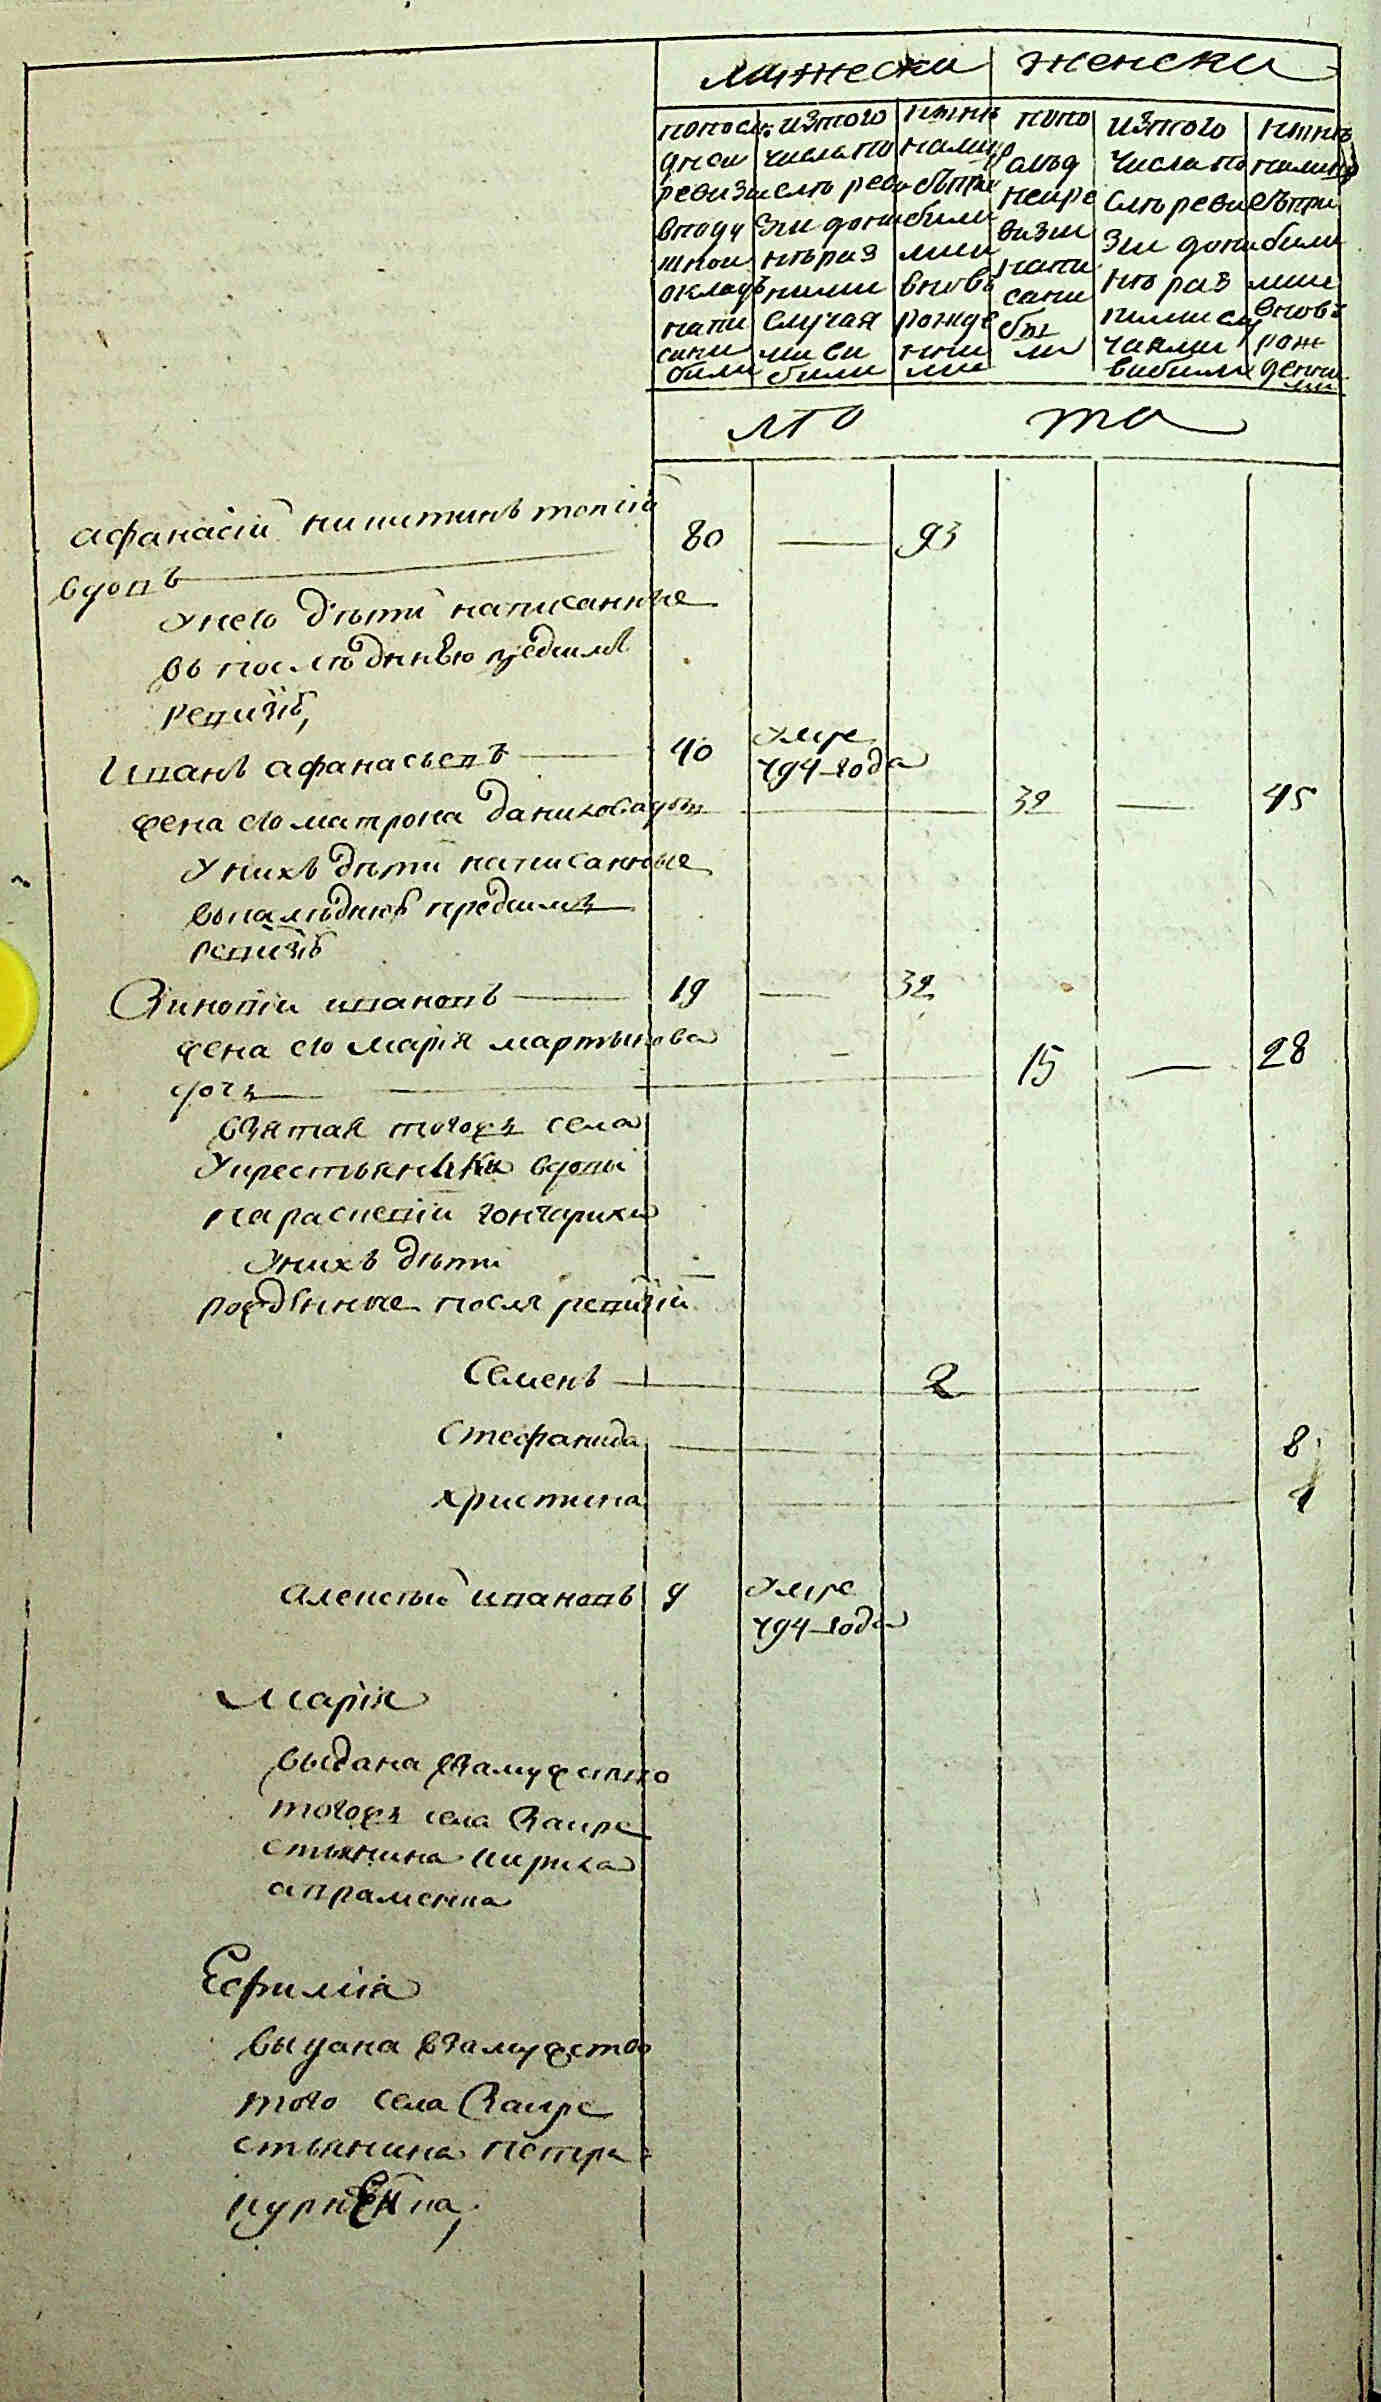 мужеска женска
попосле
дней
ревизи
вподу
шной
окладъ
напи
сани
били
изтого
числа по
слъ реви
зіи дони
нъ раз
ними
случая
ми ви
били
нинъ
налицо
съпри
били
мми
вновь
рожде
нни
ми
попо
слъд
ней ре
визіи
напи
сани
бы
ли
изтого
числа по
слъ реви
зіи дони
нъ раз
ними слу
чаями
вибили
нинъ
налицо
съпри
били
мми
вновь
рож
денни
ми
лъ та
афанасій никитинъ
вдовъ 80 — 93
унего дъти написанные
въ последнъю предъимъ
ревизіѣ,
Иванъ афанасьевъ — 40 умре
794 года
жена его матрона данилова дочь 32 — 45
унихъ дъти написанные
ревизіѣ
Зиновіи ивановъ — 19 — 32
жена его марія мартынова
дочь — 15 — 28
взятая тогожъ села
укрестьянки вдовы
параскевіи гончарихи
унихъ дъти
рожденные после ревизіи
Семенъ — 2
Стефанида — 8
христина — 1
алексъй ивановъ 9 умре
794 года
марія
выдана взамужство
тогожъ села закре
стьянина кирила
авраменка
Ефимія
выдана взамужство
того села закре
стьянина петра